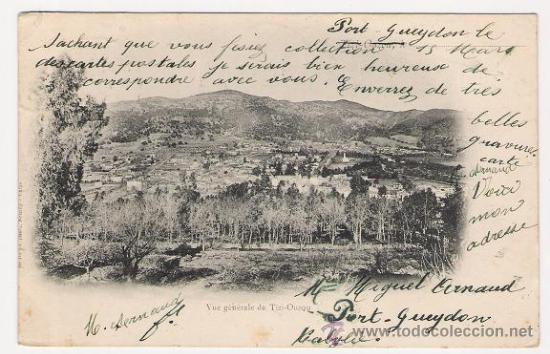 Port Gueydon le
15 Mars
Sachant que vous faisiez collection
des cartes postales je serais bien heureuse de
correspondre avec vous. Enverrez de très
belles
gravures
carte
Arnaud
Voici
mon
adresse
Miguel Ernaud
Port-Gueydon
Vue générale de Tizi-Ouzou
M. Arnaud
todocoleccion.net